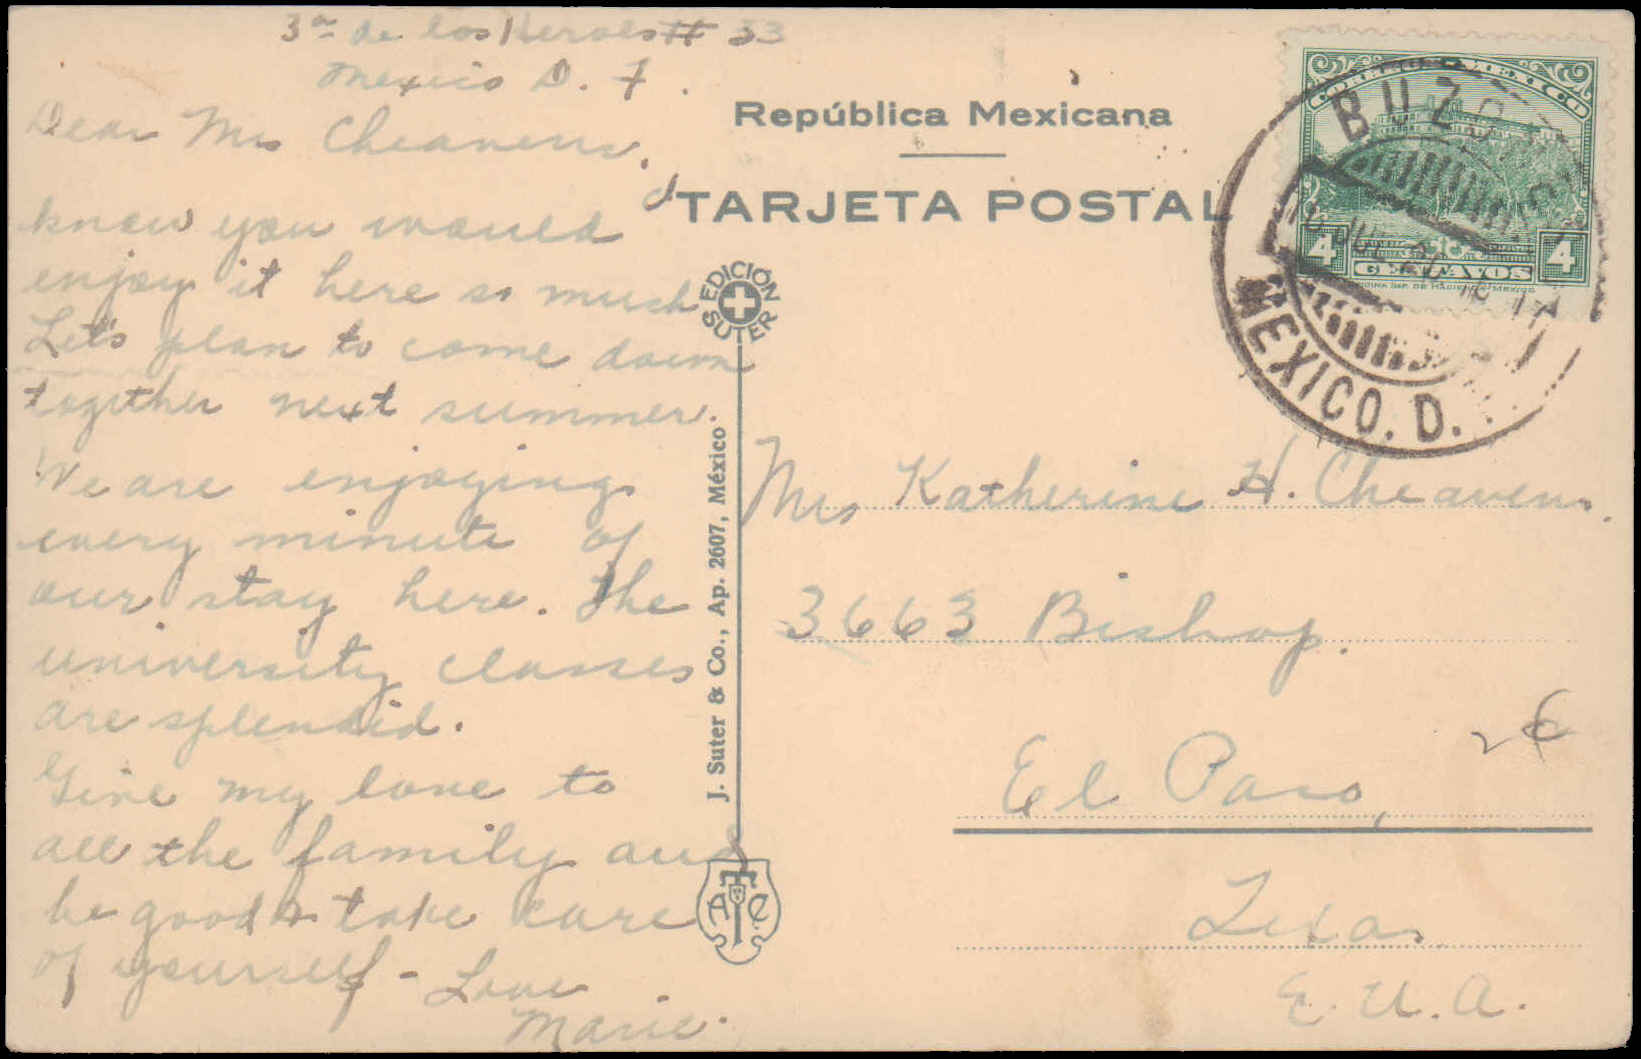 3ª de los Heroes # 33
Mexico D. F.
Dear Mrs Cheavens,
I
know you would
enjoy it here so much
Let's plan to come down
together next summer.
We are enjoying
every minute of
our stay here. The
university classes
are splendid.
Give my love to
all the family and
be good & take care
of yourself - Love
Marie.
República Mexicana
TARJETA POSTAL
EDICIÓN
SUTER
J. Suter & Co., Ap. 2607, México
A T C
CORREOS MEXICO
4 CENTAVOS 4
BUZON
MEXICO. D.
Mrs Katherine H. Cheavens.
3663 Bishop.
El Paso,
Texas
E. U. A.